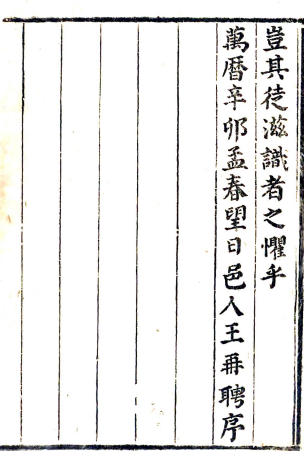 豈其徒滋識者之懼乎
萬曆辛卯孟春望日邑人王再聘序